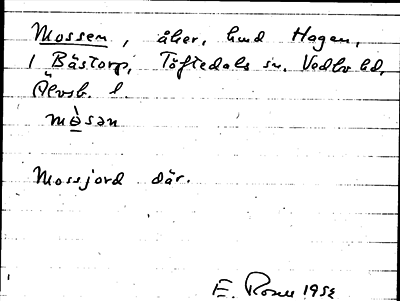 Mossen, åker, hmd Hagen,
1 Båstorp, Töftedals sn, Vedbo hd,
Älvsb. l.
mòsən
Mossjord där.
E. Rosell 1952